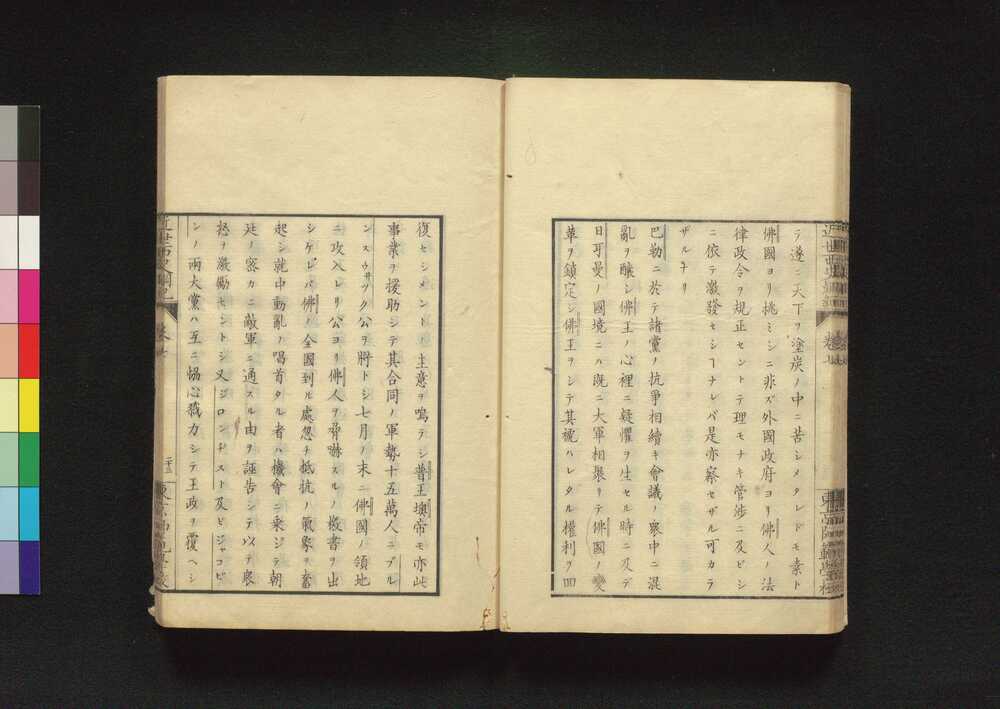 テ遂ニ天下ヲ塗炭ノ中ニ苦シメタレドモ素ト
佛國ヨリ挑ミシニ非ズ外國政府ヨリ佛人ノ法
律政令ヲ規正セントテ理モナキ管渉ニ及ビシ
ニ依テ激發セシヿナレバ是亦察セザル可カラ
ザルナリ
巴勒ニ於テ諸黨ノ抗爭相續キ會議ノ衆中ニ混
亂ヲ釀シ佛王ノ心裡ニ疑懼ヲ生セル時ニ及デ
日耳曼ノ國境ニハ既ニ大軍相聚リテ佛國ノ變
革ヲ鎮定シ佛王ヲシテ其褫ハレタル權利ヲ回
復セシメントノ主意ヲ鳴テシ普王墺帝モ亦此
事業ヲ援助シテ其合同ノ軍勢十五萬人ニブル
ンスウヰツク公ヲ將トシ七月ノ末ニ佛國ノ領地
ニ攻入レリ公ヨリ佛人ヲ脅嚇スルノ檄書ヲ出
シケレバ佛ノ全國到ル處忽チ抵抗ノ氣象ヲ奮
起シ就中動亂ノ唱首タル者ハ機會ニ乘ジテ朝
廷ノ密カニ敵軍ニ通ズル由ヲ誣告シテ以テ衆
怒ヲ激勵セントシ又ジロンヂスト及ビジャコビ
ンノ兩大黨ハ互ニ協心戮力シテ王政ヲ覆ヘシ